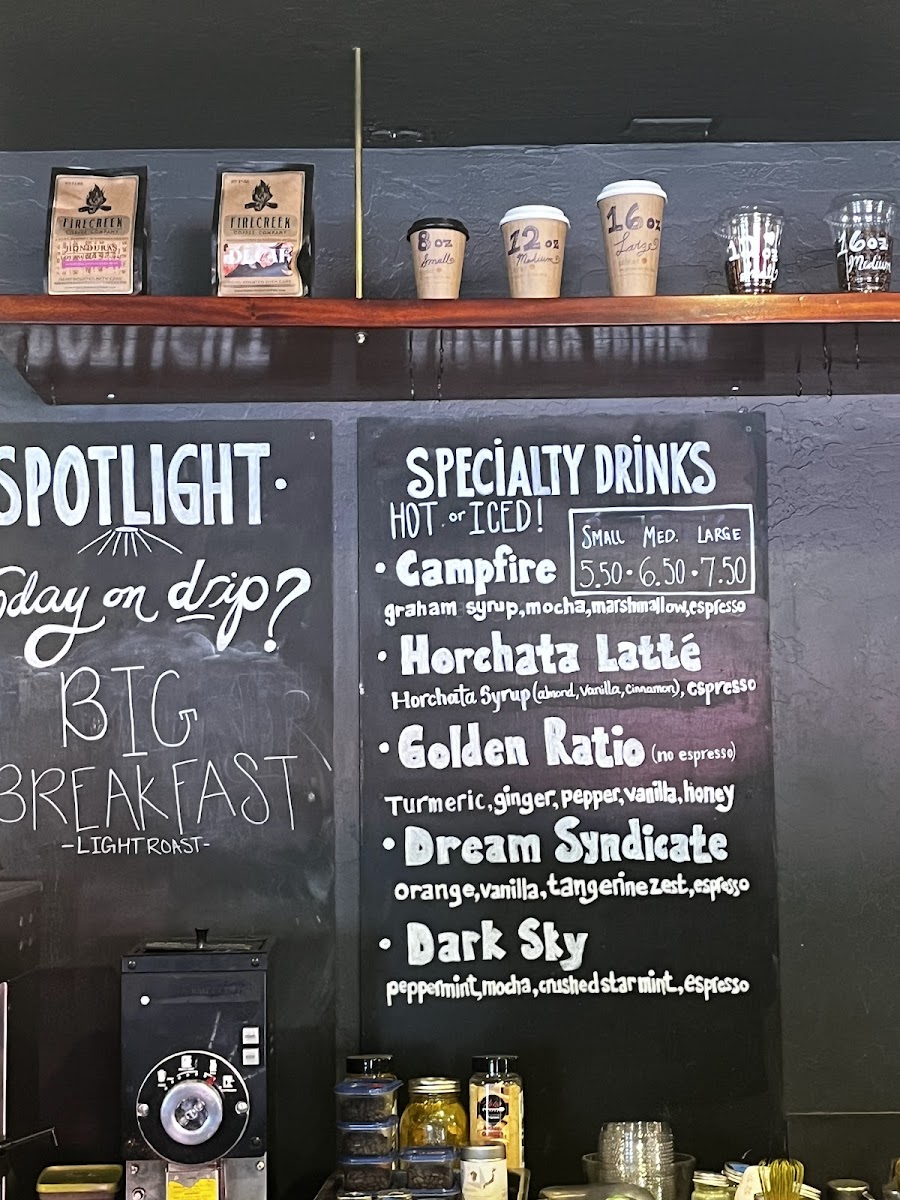 FIRECREEK
COFFEE COMPANY
HONDURAS
FIRECREEK
COFFEE COMPANY
DECAF
8 oz
Small
12 oz
Medium
16 oz
Large
16 oz
Medium
SPOTLIGHT·
on drip?
BIG
BREAKFAST
-LIGHT ROAST-
SPECIALTY DRINKS
HOT or ICED!
SMALL MED. LARGE
5.50 · 6.50 · 7.50
· Campfire
graham syrup, mocha, marshmallow, espresso
· Horchata Latté
Horchata Syrup (almond, vanilla, cinnamon), espresso
· Golden Ratio (no espresso)
Turmeric, ginger, pepper, vanilla, honey
· Dream Syndicate
orange, vanilla, tangerine zest, espresso
· Dark Sky
peppermint, mocha, crushed star mint, espresso